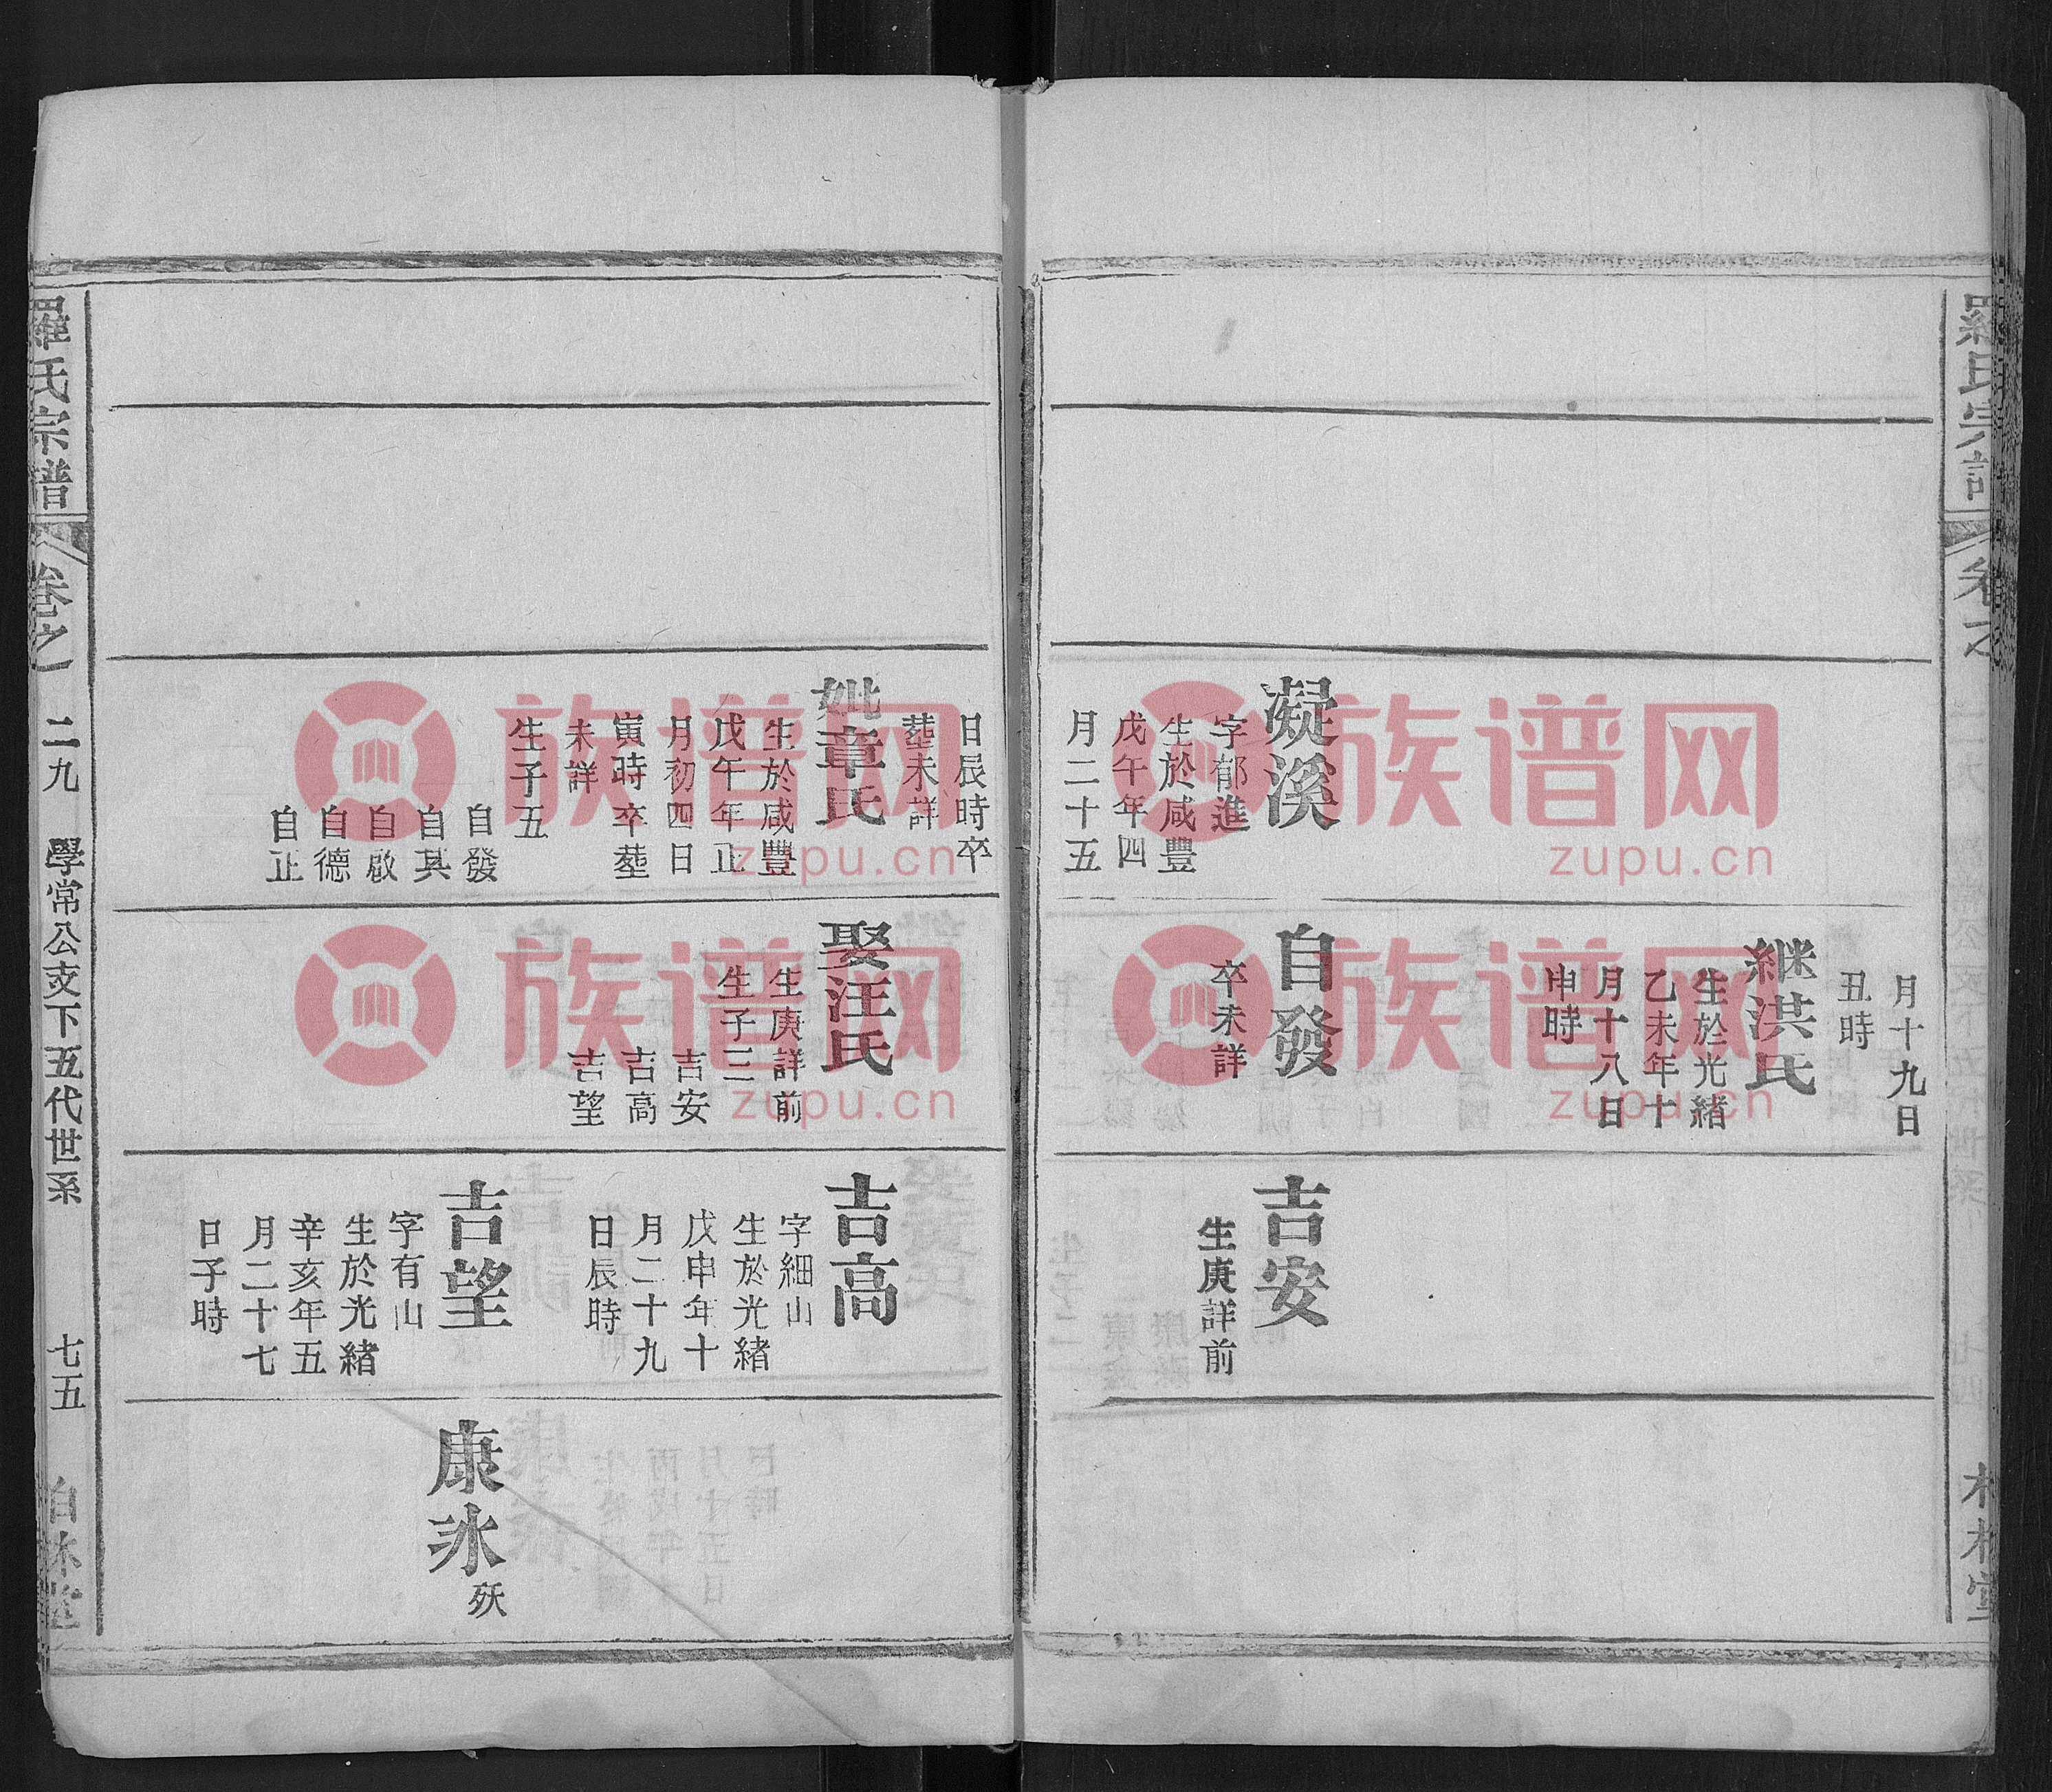 月十九日
丑時
継洪氏
生於光緒
乙未年十
月十八日
申時
凝溪
字郁進
生於咸豐
戊午年四
月二十五
日辰時卒
塟未詳
妣章氏
生於咸豐
戊午年正
月初四日
寅時卒塟
未詳
生子五
自發
自其
自啟
自德
自正
自發
卒未詳
娶汪氏
生庚詳前
生子三
吉安
吉高
吉望
吉安
生庚詳前
吉高
字細山
生於光緒
戊申年十
月二十九
日辰時
吉望
字有山
生於光緒
辛亥年五
月二十七
日子時
康氷
殀
羅氏宗譜
卷之
二九
學常公支下五代世系
七五
柏林堂
族谱网
zupu.cn
族谱网
zupu.cn
族谱网
zupu.cn
族谱网
zupu.cn